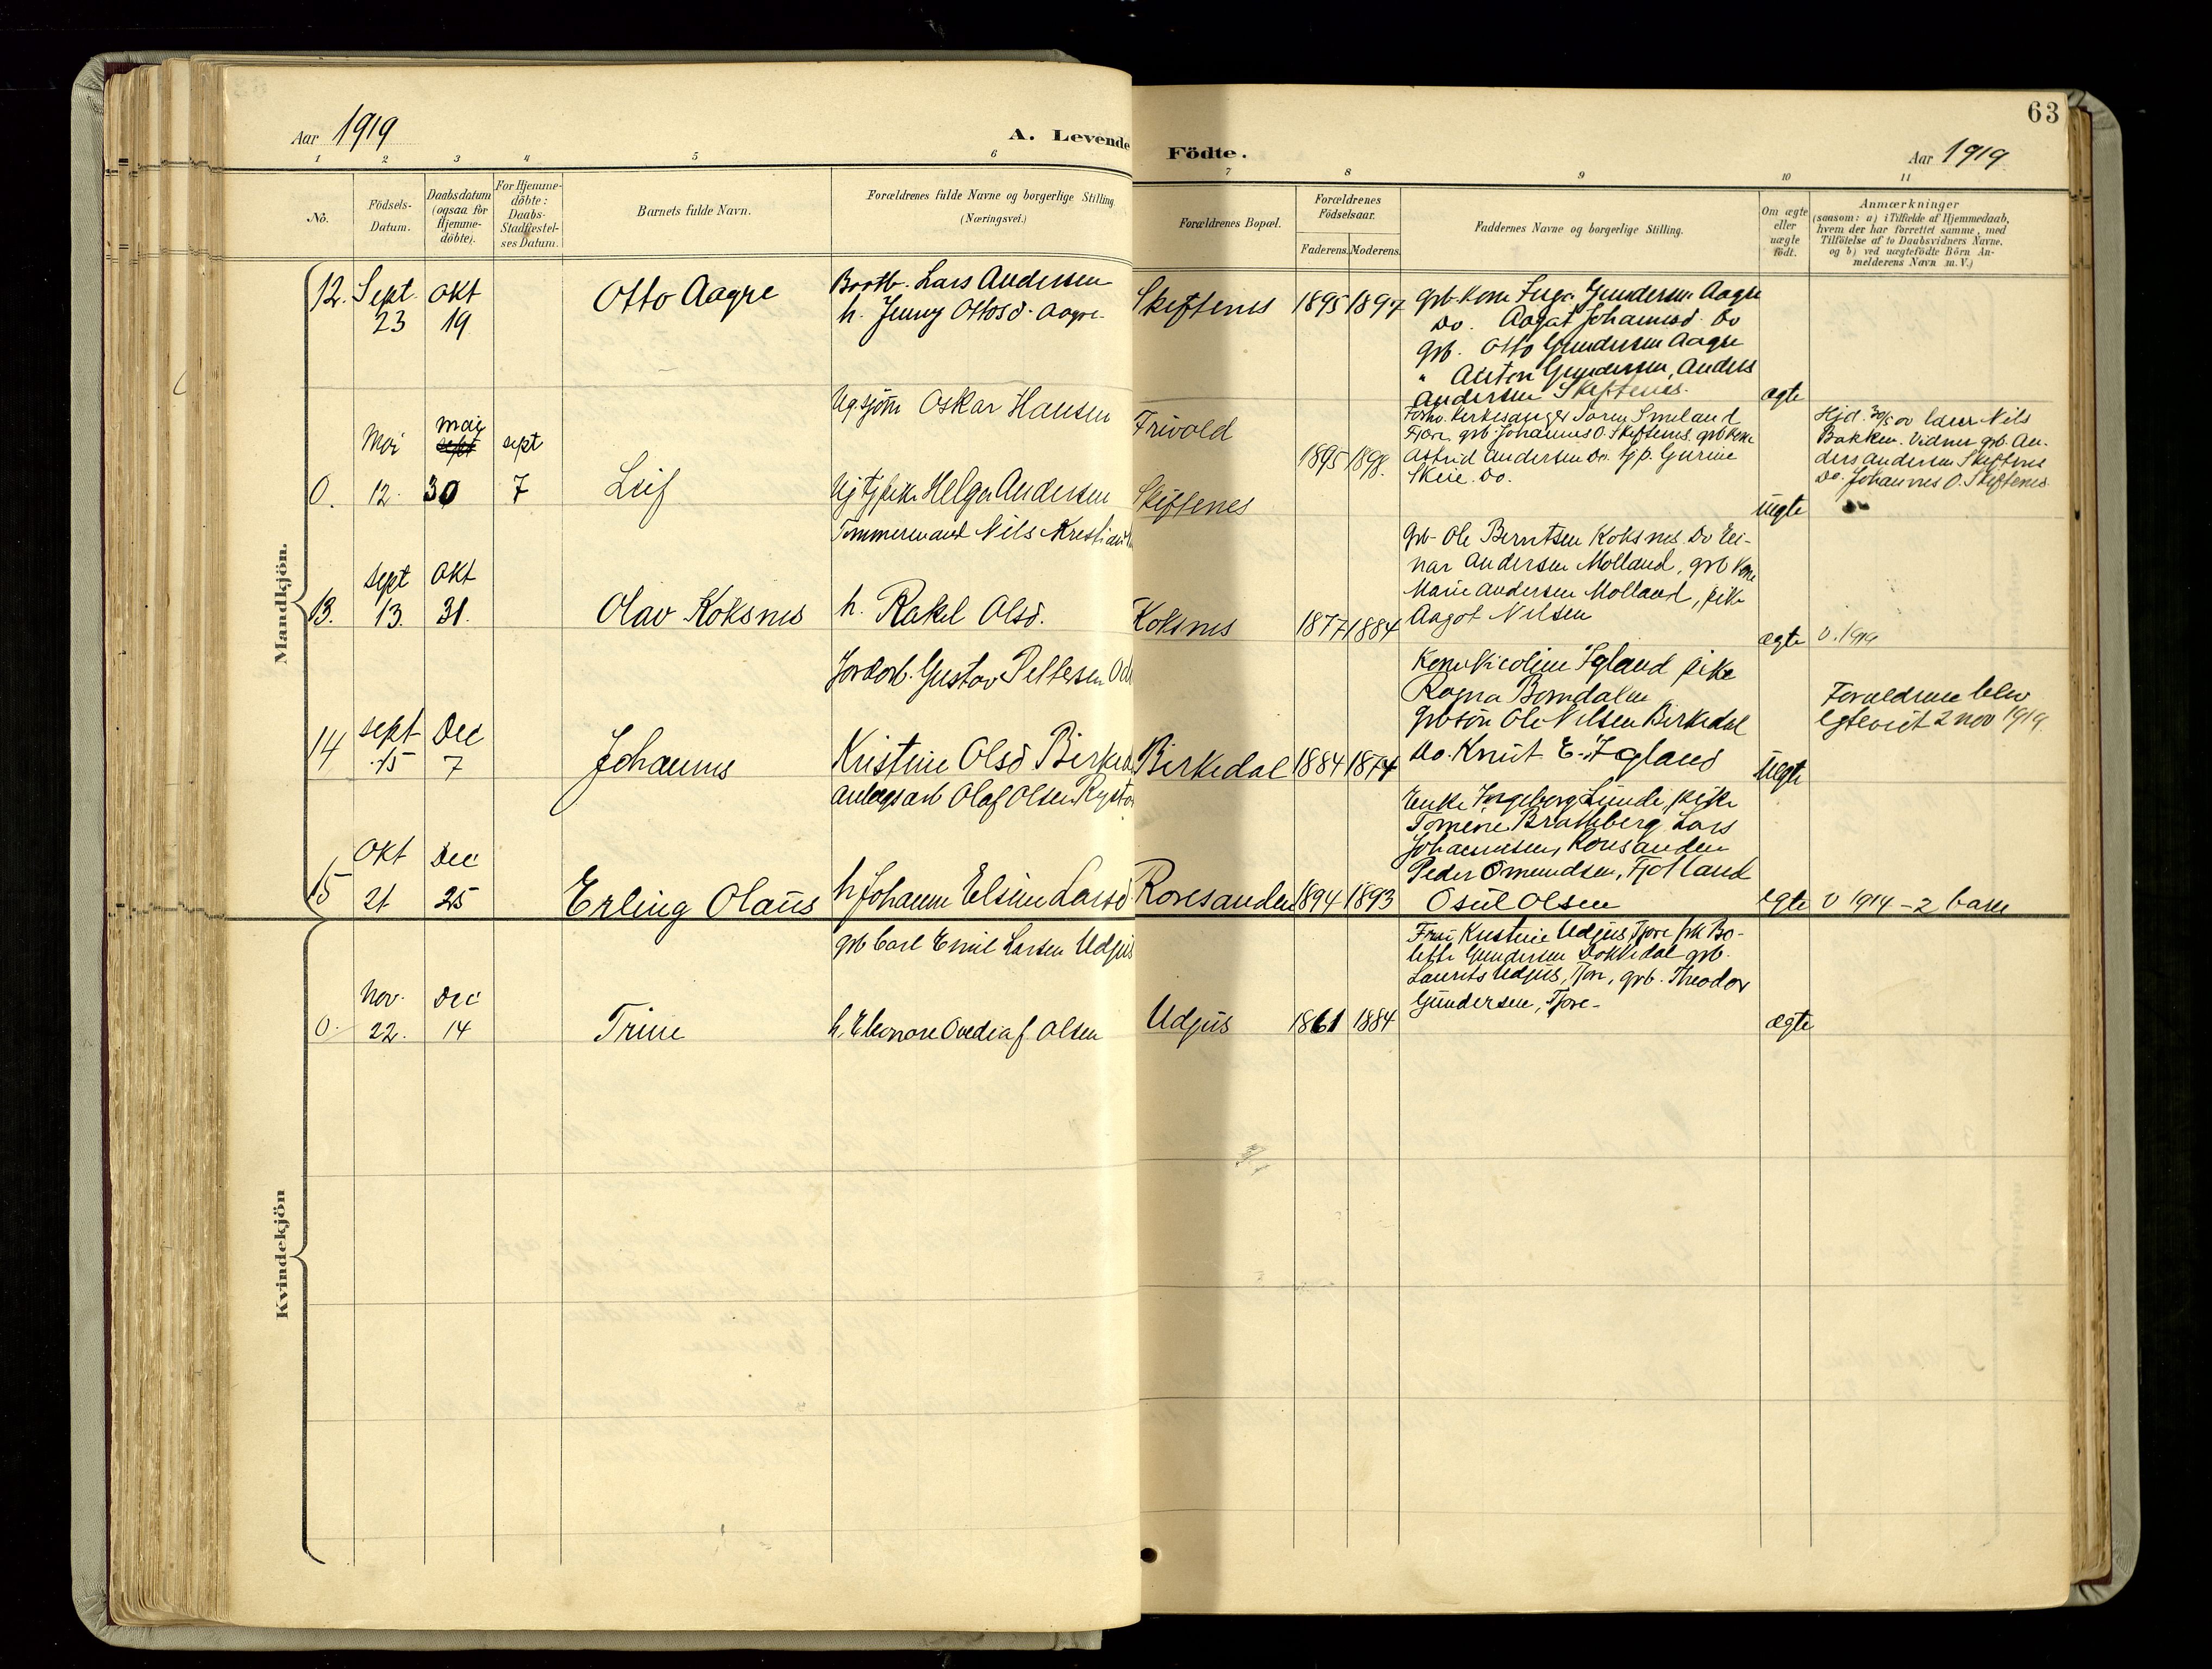 63
Aar 1919
A. Levende Födte.
Aar 1919
1 2 3 4 5 6 7 8 9 10 11
No.
Födsels-
Datum.
Daabsdatum
(ogsaa for
Hjemme-
döbte).
For Hjemme-
döbte:
Daabs-
Stadfæstel-
ses Datum.
Barnets fulde Navn.
Forældrenes fulde Navne og borgerlige Stilling
(Næringsvei.)
Forældrenes Bopæl.
Forældrenes
Födselsaar.
Faderens. Moderens.
Faddernes Navne og borgerlige Stilling.
Om ægte
eller
uægte
födt.
Anmærkninger
(saasom: a) i Tilfælde af Hjemmedaab,
hvem der har forrettet samme, med
Tilföielse af to Daabsvidners Navne,
og b) ved uægtefödte Börn An-
melderens Navn m. V.)
Mandkjön.
12. Sept 23
Okt 19
Otto Aagre
Lars Andersen
h. Jenny Ottosd. Aagre
Skiftenes
1895 1897
Gundersen Aagre
Do. Johannesd. Do
grb. Otto Gundersen Aagre
" Anton Gundersen, Anders
Andersen Skiftenes.
ægte
0. Mai 12.
mai sept 30
sept 7
Leif
Ug. sjøm Oskar Hansen
Helga Andersen
Frivold
Skiftenes
1895 1898.
Forho. Kirkesanger Søren Smeland
Fjære, grb. Johannes O. Skiftenes, grb kone
Astrid Andersen Do. Gurine
Skeie. Do.
uegte
Hjd. 30/5 av lærer Nils
Bakken. Vidner grb. An-
ders Andersen Skiftenes
Do. Johannes O. Skiftenes.
13. sept 13.
Okt 31.
Olav Koksnes
Tømmermand Nils
h. Rakel Olsd.
Koksnes
1877 1884
grb. Ole Berntsen Koksnes. Do Ei-
nar Andersen Molland, grb kone
Marie Andersen Molland, pike
Aagot Nilsen
ægte
v. 1919
14 sept 15
Dec 7
Johannes
Jordarb. Gustav Pettersen
Kristine Olsd
Birkedal
1884 1874
Kone Nicoline Igland pike
Ragna Bomdalen
grbsøn Ole Nilsen Birkedal
Do. Knut E. Igland
uegte
Forældrene blev
egteviet 2 nov 1919.
15 Okt 21
Dec 25
Erling Olaus
anlegsarb Olaf Olsen
h Johanne Elsine Larsd.
Roresanden
1894 1893
Enke Ingeborg Lunde, pike
Tomine Bratteberg Lars
Johannesen, Roresanden
Peder Omundsen, Fjotland
Osul Olsen
egte
v 1914 - 2 barn
Kvindekjön
0. Nov. 22.
Dec 14
Trine
grb Carl Emil Larsen Udjus
h. Eleonore Ovedia f. Olsen
Udjus
1861 1884
Fru Kristine Udjus, Fjære frk Bo-
lette Gundersen Dokkedal grb.
Laurits Udjus, Fjære, grb. Theodor
Gundersen, Fjære.
ægte